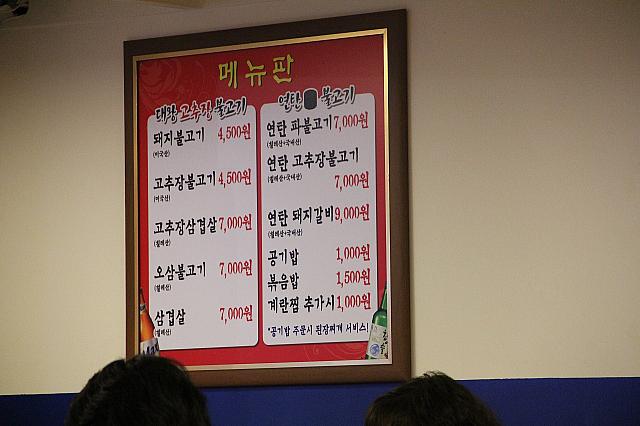 메뉴판
대왕 고추장 불고기
돼지불고기 4,500원
(미국산)
고추장불고기 4,500원
(미국산)
고추장삼겹살 7,000원
(칠레산)
오삼불고기 7,000원
(칠레산)
삼겹살 7,000원
(칠레산)
연탄 불고기
연탄 파불고기 7,000원
(칠레산+국내산)
연탄 고추장불고기
(칠레산+국내산)
7,000원
연탄 돼지갈비 9,000원
(칠레산+국내산)
공기밥 1,000원
볶음밥 1,500원
계란찜 추가시 1,000원
*공기밥 주문시 된장찌개 서비스!